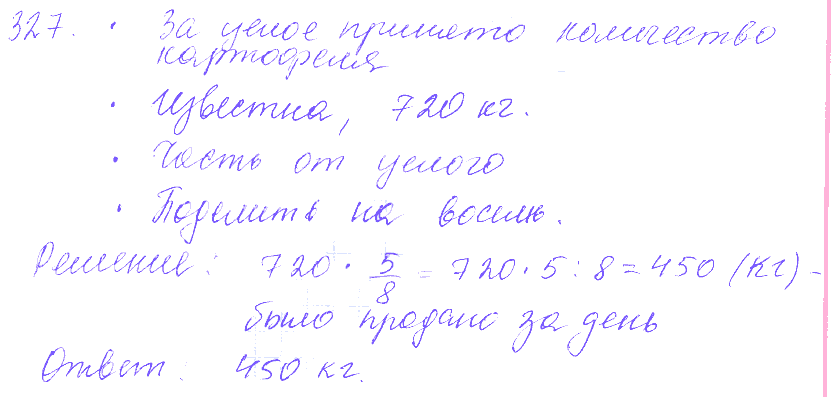 327. • За целое принято количество
картофеля
• Известна, 720 кг.
• Часть от целого
• Поделить на восемь.
Решение: 720 • 5/8 = 720 • 5 : 8 = 450 (кг) -
было продано за день
Ответ: 450 кг.